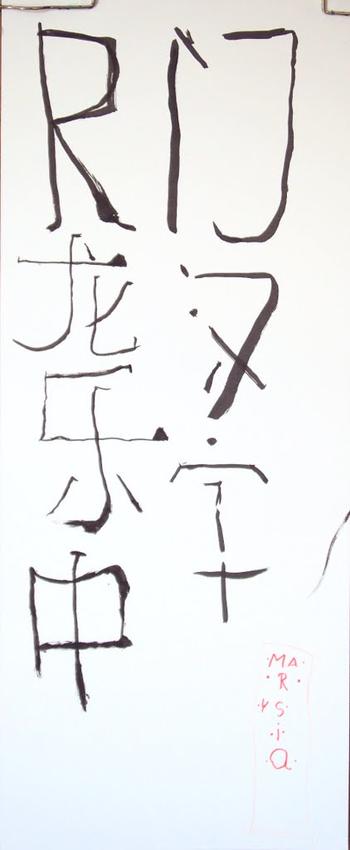 R龙乐中
门汉字
MA
R
YS
i
a